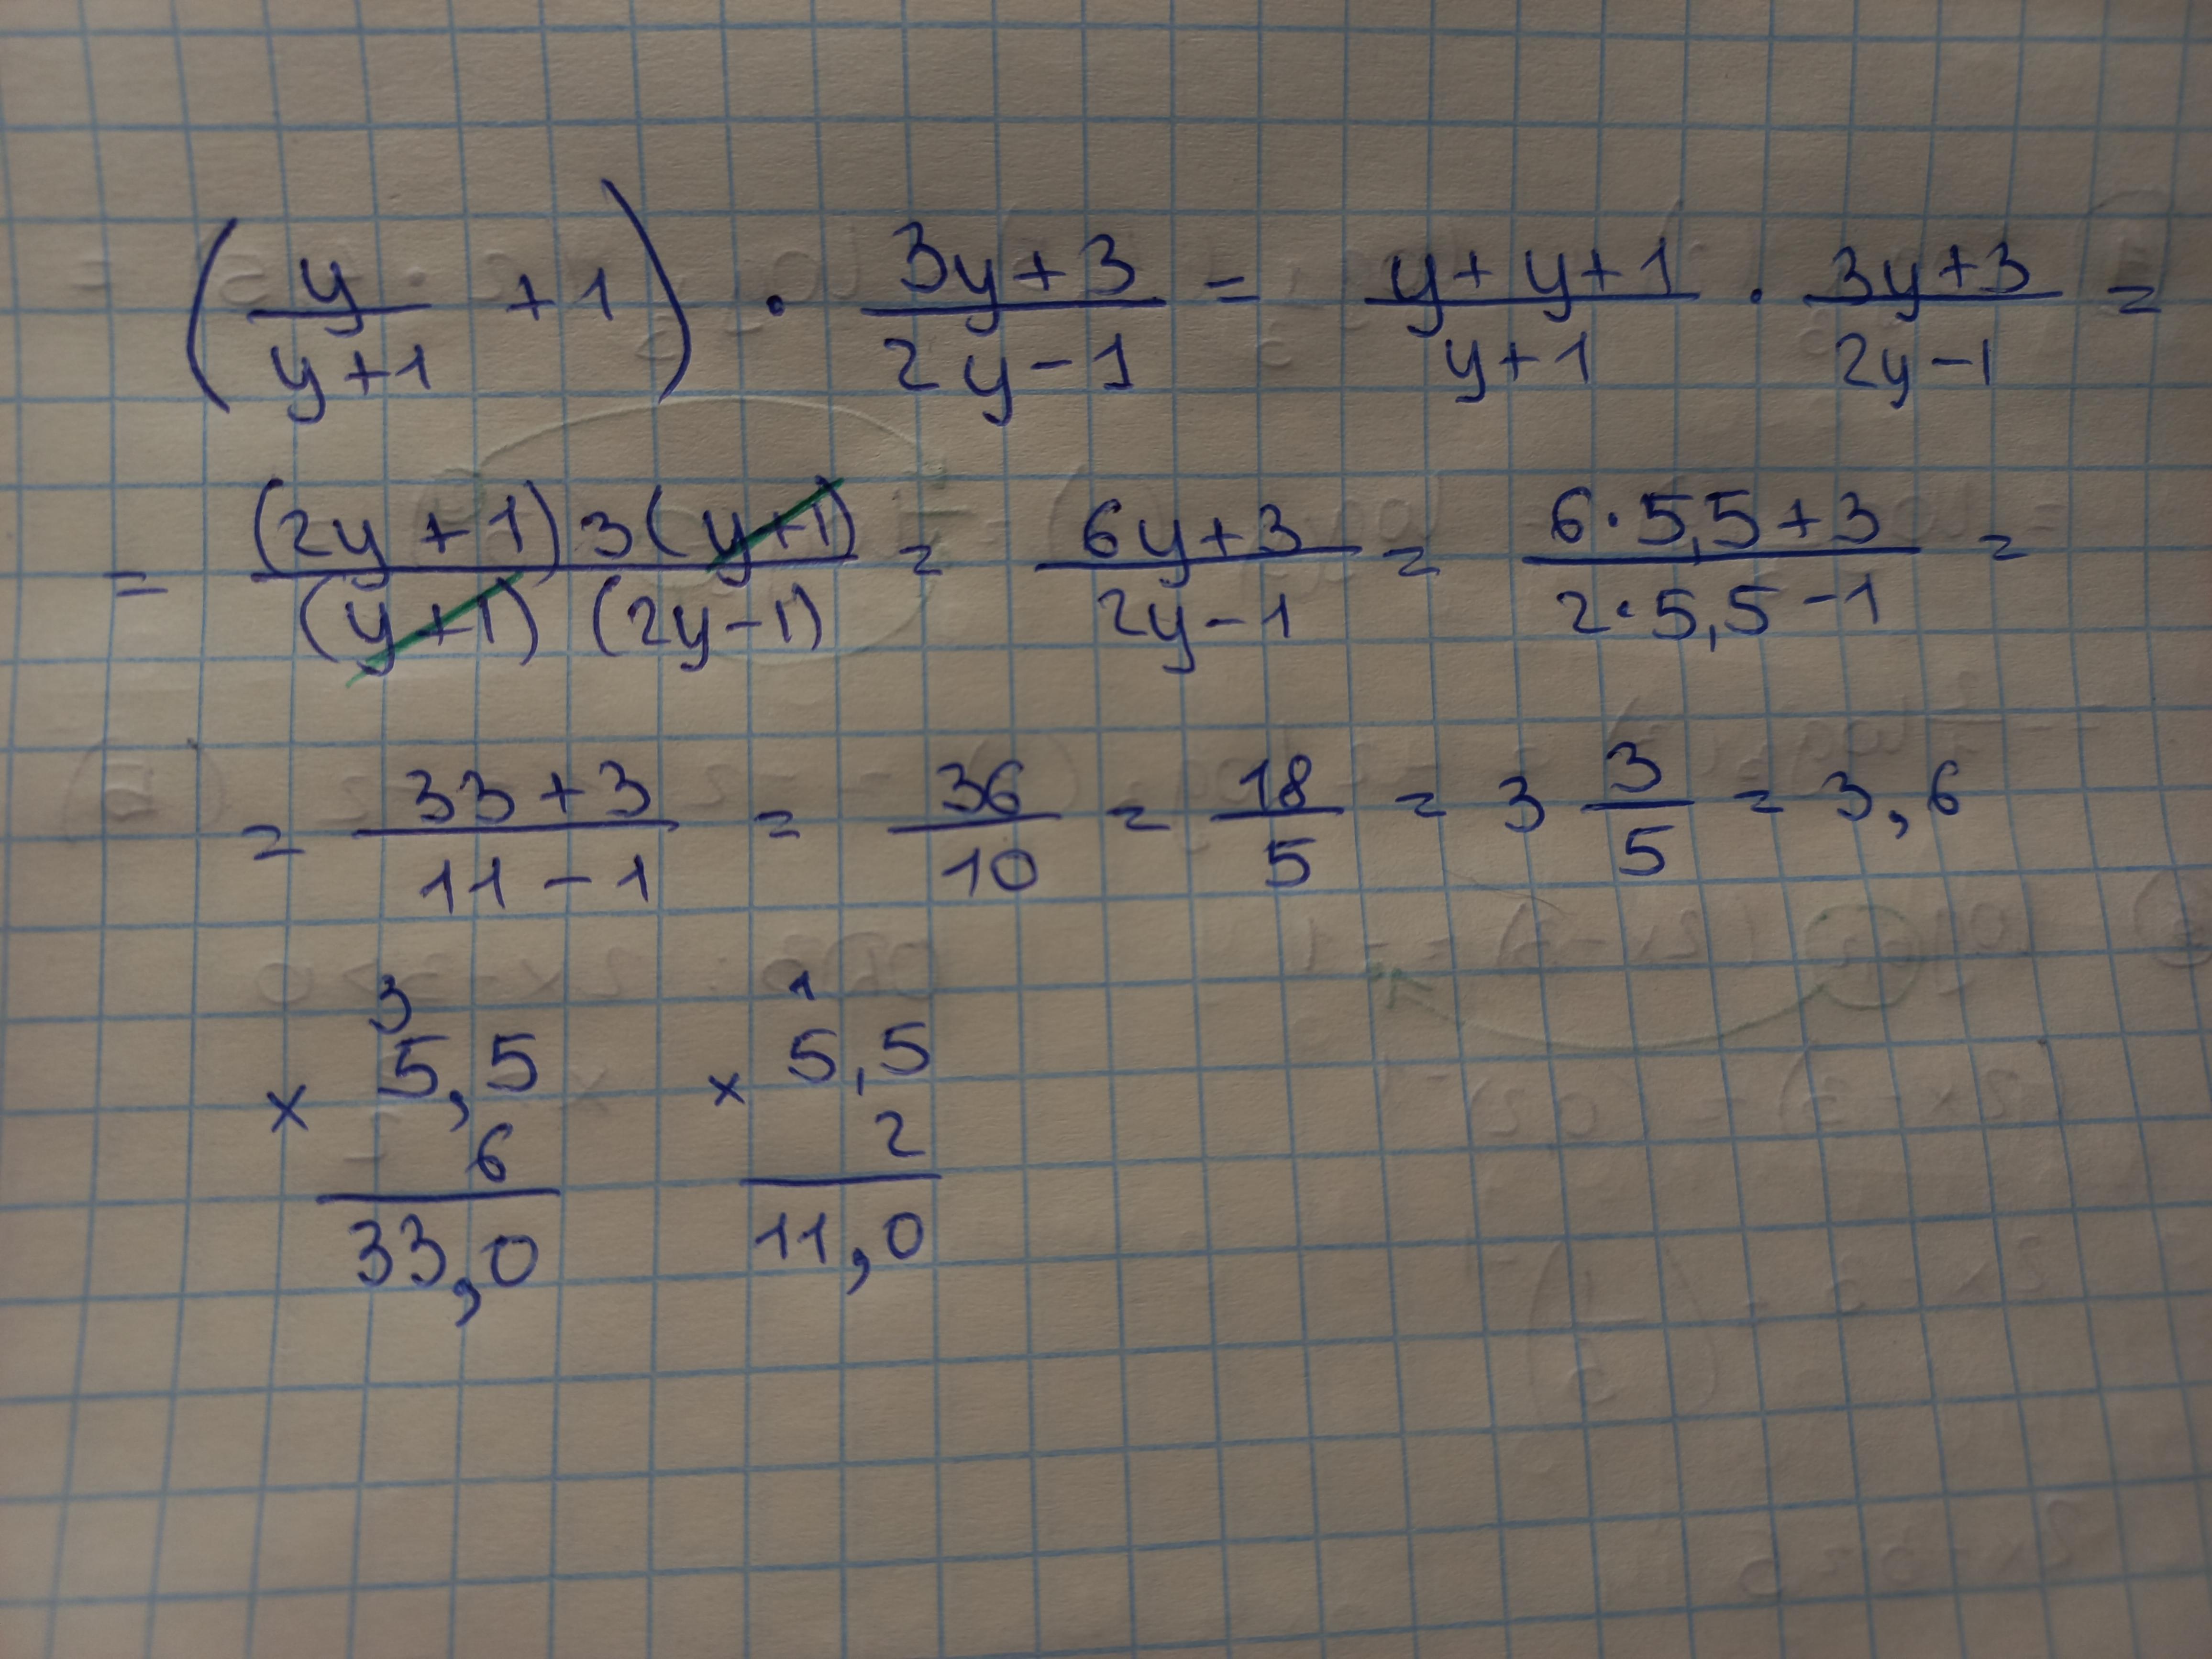 (y/(y+1) + 1) · (3y+3)/(2y-1) = (y+y+1)/(y+1) · (3y+3)/(2y-1) =
= ((2y+1)3(y+1))/((y+1)(2y-1)) = (6y+3)/(2y-1) = (6·5,5+3)/(2·5,5-1) =
= (33+3)/(11-1) = 36/10 = 18/5 = 3 3/5 = 3,6
3 1
× 5,5 × 5,5
6 2
33,0 11,0